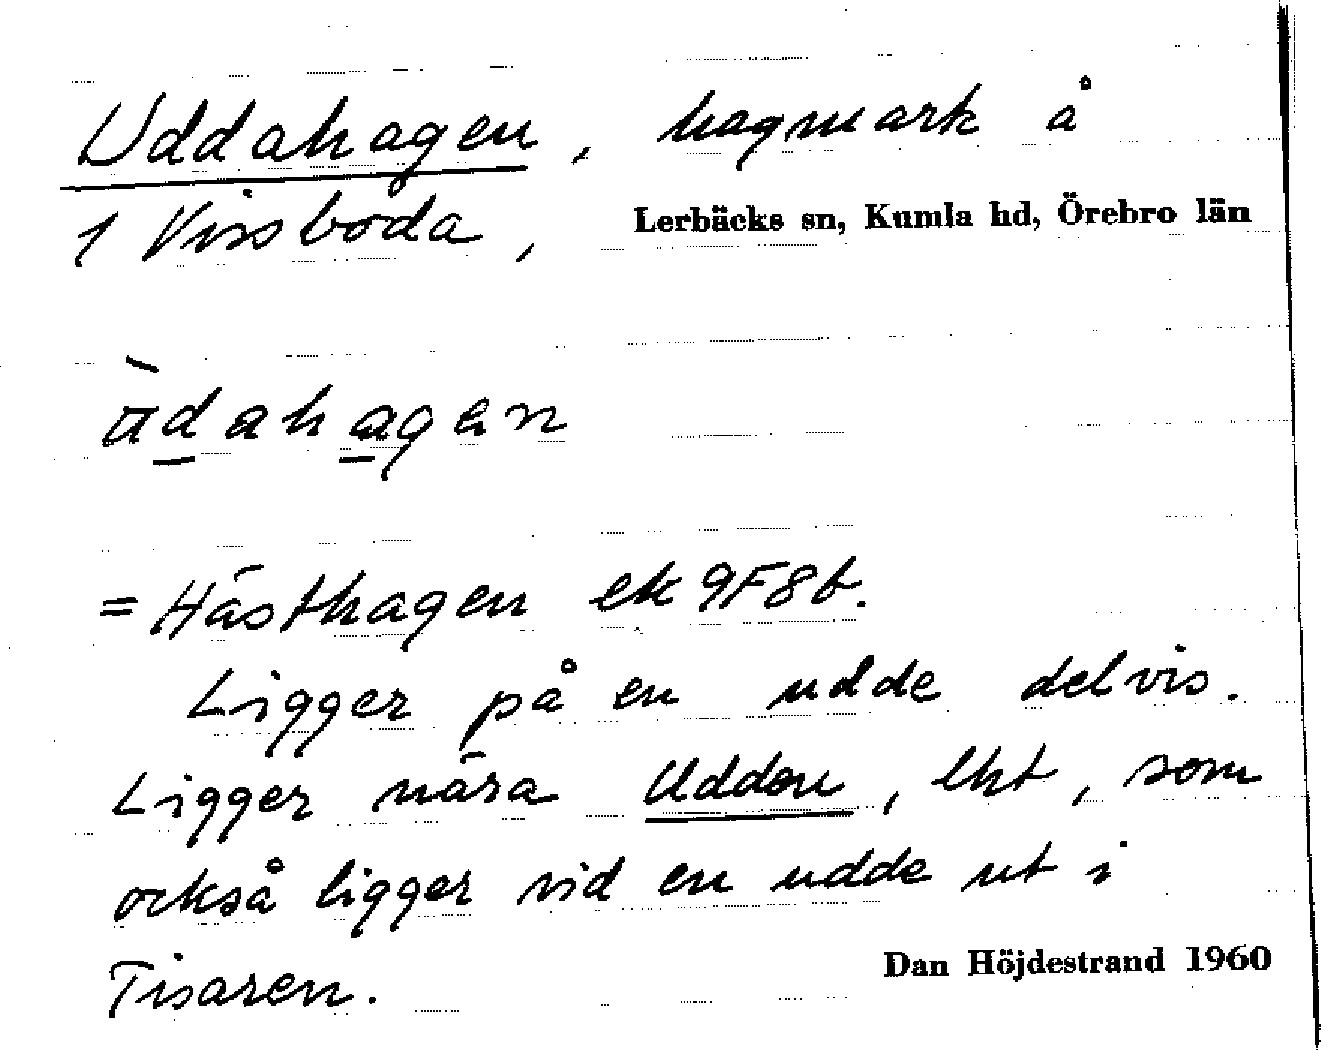 Uddahagen, hagmark å
1 Vissboda, Lerbäcks sn, Kumla hd, Örebro län
ùd̲aha̲gen
= Hästhagen ek 9F8b.
Ligger på en udde delvis.
Ligger nära Udden, lht, som
också ligger vid en udde ut i
Tisaren.
Dan Höjdestrand 1960